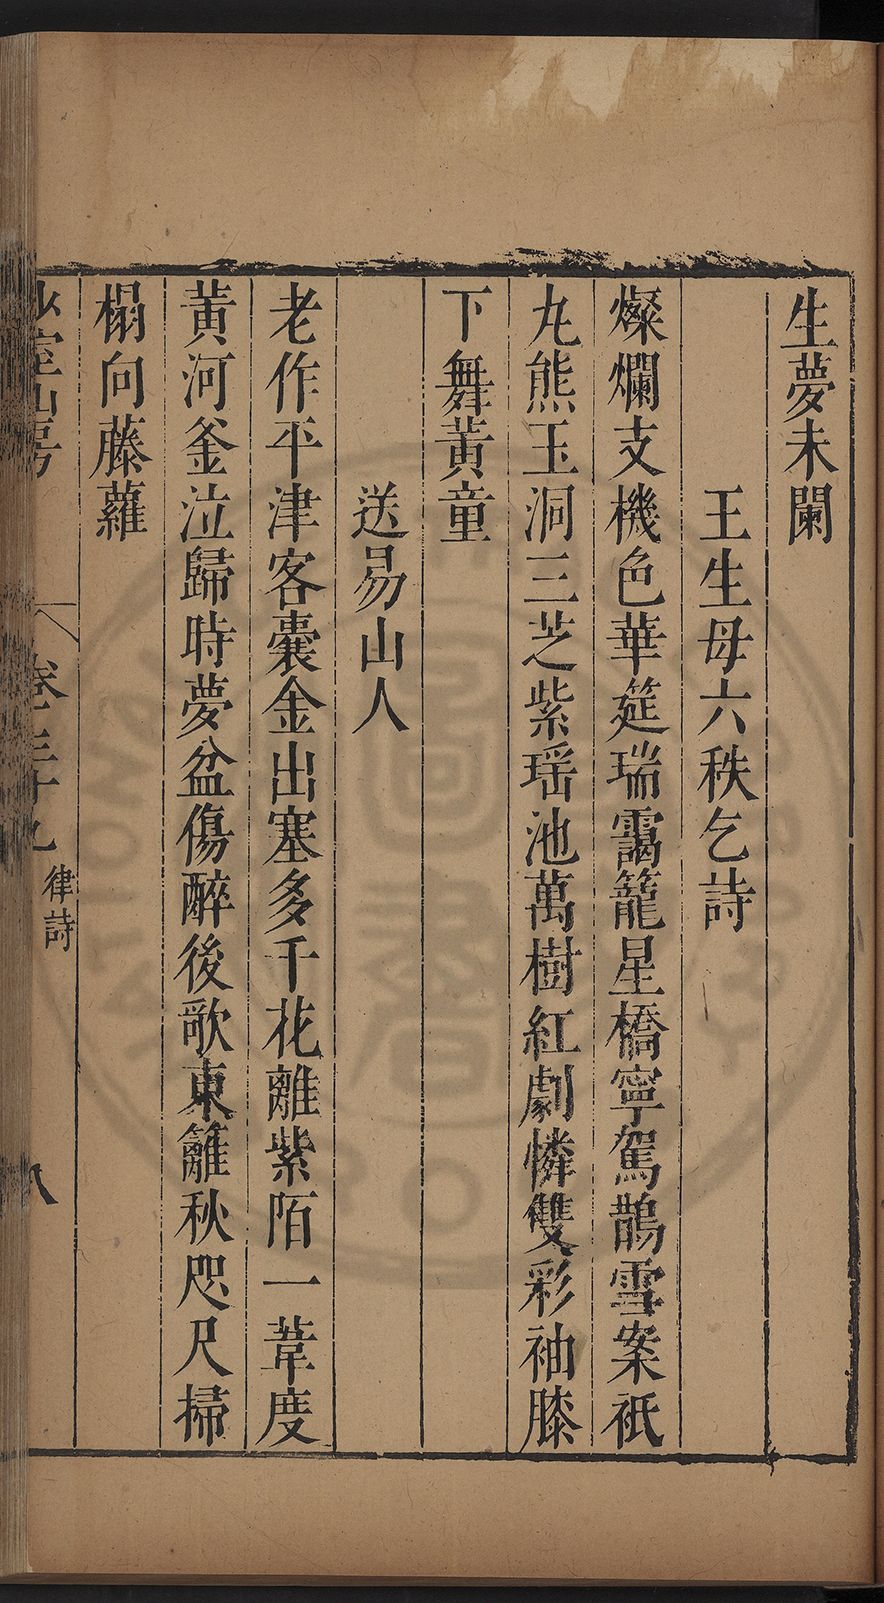 生夢未闌
王生母六秩乞詩
燦爛支機色華筵瑞靄籠星橋寧駕鵲雪案祇
丸熊玉洞三芝紫瑶池萬樹紅劇憐雙彩袖膝
下舞黃童
送易山人
老作平津客囊金出塞多千花離紫陌一葦度
黃河釜泣歸時夢盆傷醉後歌東籬秋咫尺掃
榻向藤蘿
少室山房
卷三十九
律詩
八